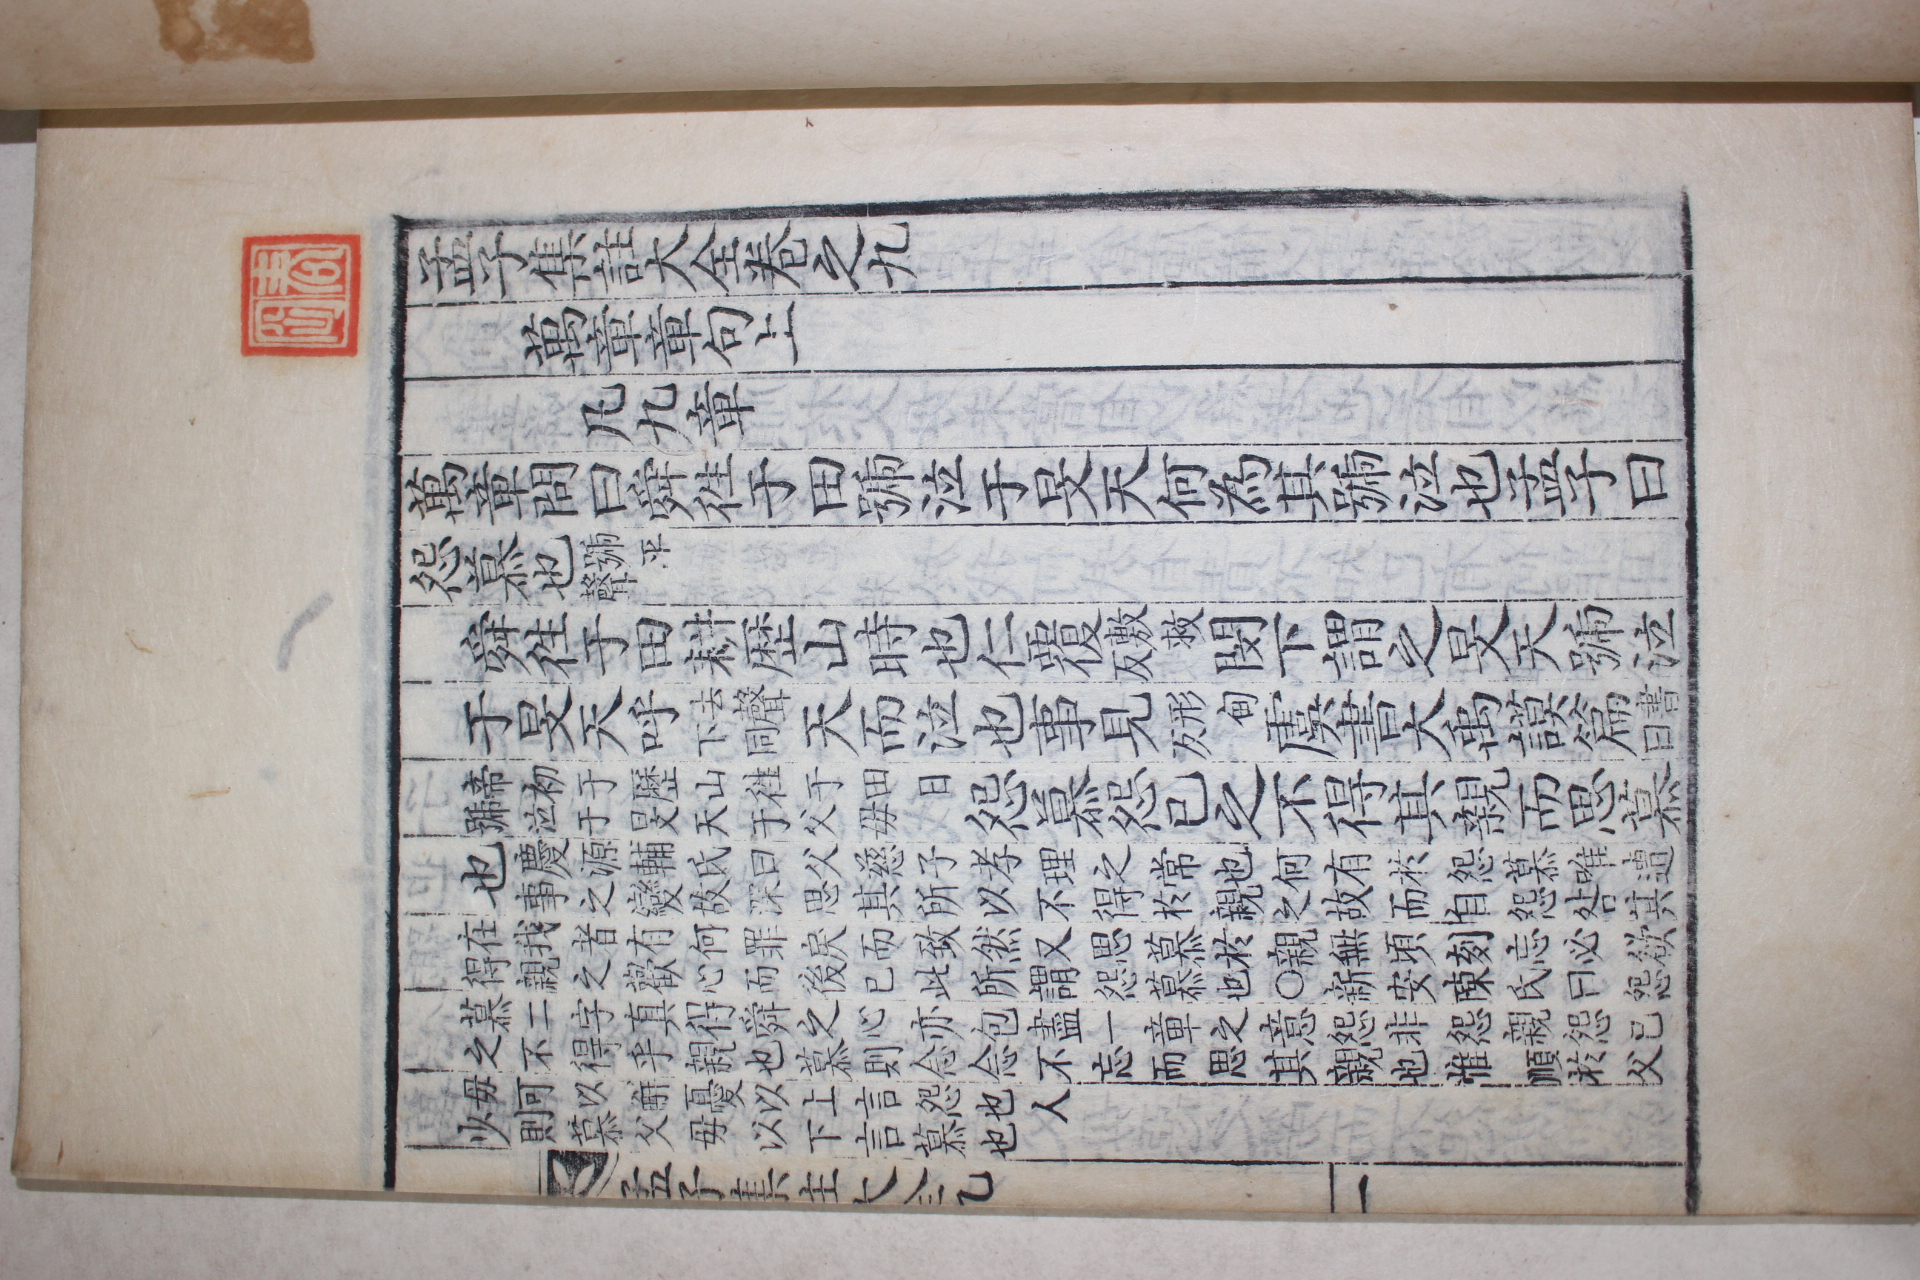 春岡
孟子集註大全卷之九
萬章章句上
凡九章
萬章問曰舜徃于田號泣于旻天何為其號泣也孟子曰
怨慕也號平聲
舜徃于田耕歷山時也仁覆敷救反閔下謂之旻天號泣
于旻天呼去聲下同天而泣也事見形甸反虞書大禹謨篇書曰
帝初于歷山徃于田日號泣于旻天于父母怨慕怨己之不得其親而思慕
也慶源輔氏曰父慈子孝理之常也何有於怨慕唯遭
事之變故深思其所以不得於親之故而自怨咎其
在我者有何罪戾而致然又思慕於親無頃刻忘必欲
得親之歡心而後已此所謂怨慕也○新安陳氏曰怨
慕二字真得舜之心亦包盡一章之意怨非怨親怨己
之不得乎親也慕則念念不忘而思其親也惟順於父
母可以解憂以上言怨也人
少則慕父母以下言慕也
孟子集註大全九 一